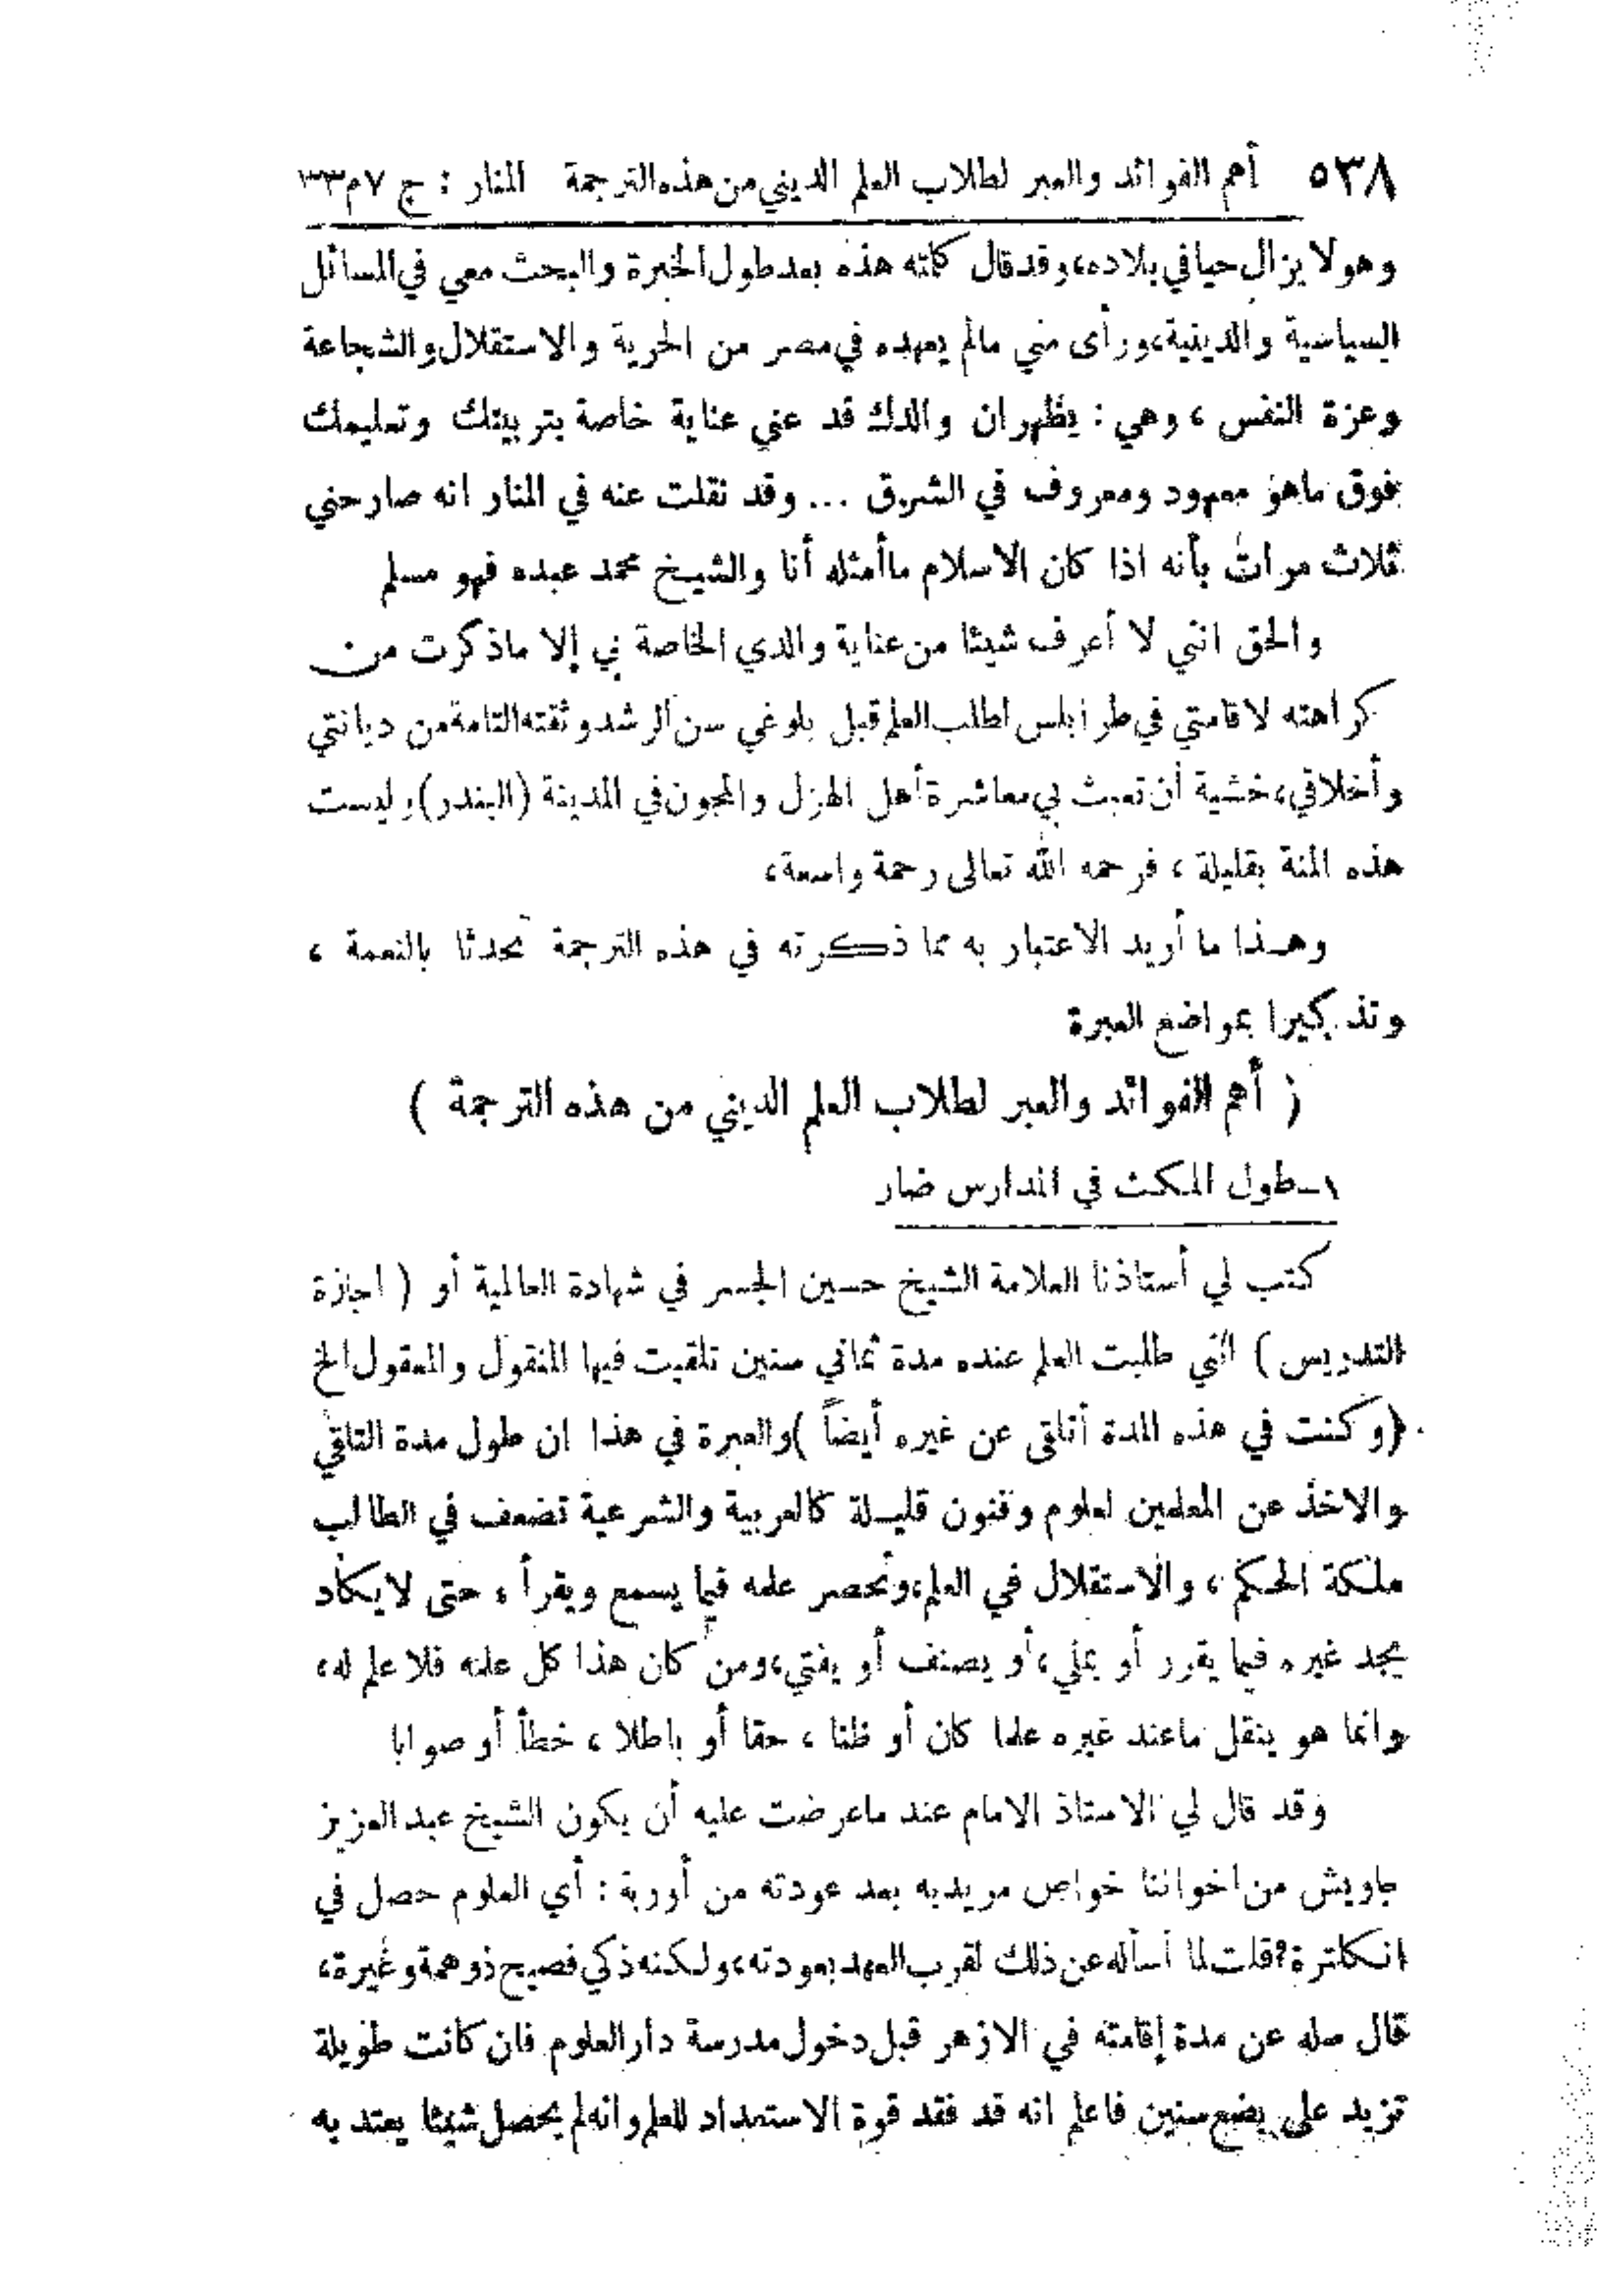 ٥٣٨ أهم الفوائد والعبر لطلاب العلم الديني من هذه الترجمة المنار : ج ٧ م ٣٣
وهو لا يزال حيا في بلاده، وقد قال كلمته هذه بعد طول الخبرة والبحث معي في المسائل
السياسية والدينية، ورأى مني مالم يعهده في مصر من الحرية والاستقلال والشجاعة
وعزة النفس ، وهي : يظهر ان والدك قد عني عناية خاصة بتربيتك وتعليمك
فوق ماهو معهود ومعروف في الشرق ... وقد نقلت عنه في المنار انه صارحني
ثلاث مرات بأنه اذا كان الاسلام ماأمثله أنا والشيخ محمد عبده فهو مسلم
والحق انني لا أعرف شيئا من عناية والدي الخاصة بي إلا ماذكرت من
كراهته لاقامتي في طرابلس لطلب العلم قبل بلوغي سن الرشد وثقته التامة من ديانتي
وأخلاقي، خشية أن تعبث بي معاشرة أهل الهزل والمجون في المدينة (البندر) وليست
هذه المنة بقليلة ، فرحمه الله تعالى رحمة واسعة،
وهذا ما أريد الاعتبار به مما ذكرته في هذه الترجمة تحدثا بالنعمة ،
وتذكيرا بمواضع العبرة
( أهم الفوائد والعبر لطلاب العلم الديني من هذه الترجمة )
١ــ طول المكث في المدارس ضار
كتب لي أستاذنا العلامة الشيخ حسين الجسر في شهادة العالمية أو ( اجازة
التدريس ) انني طلبت العلم عنده مدة ثماني سنين تلقيت فيها المنقول والمعقول الخ
(وكنت في هذه المدة أتلقى عن غيره أيضاً )والعبرة في هذا ان طول مدة التلقي
والاخذ عن المعلمين لعلوم وفنون قليلة كالعربية والشرعية تضعف في الطالب
ملكة الحكم ، والاستقلال في العلم، وتحصر علمه فيما يسمع ويقرأ ، حتى لايكاد
يجد غيره فيما يقرر أو يملي، أو يصنف أو يفتي، ومن كان هذا كل علمه فلا علم له،
وانما هو ينقل ماعند غيره علما كان أو ظنا ، حقا أو باطلا ، خطأ أو صوابا
وقد قال لي الاستاذ الامام عند ماعرضت عليه أن يكون الشيخ عبد العزيز
جاويش من اخواننا خواص مريديه بعد عودته من أوربة : أي العلوم حصل في
انكلترة؟ قلت لما أسأله عن ذلك لقرب العهد بعودته، ولكنه ذكي فصيح ذو همة وغيرة،
قال سله عن مدة إقامته في الازهر قبل دخول مدرسة دار العلوم فان كانت طويلة
تزيد على بضع سنين فاعلم انه قد فقد قوة الاستعداد للعلم وانه لم يحصل شيئا يعتد به